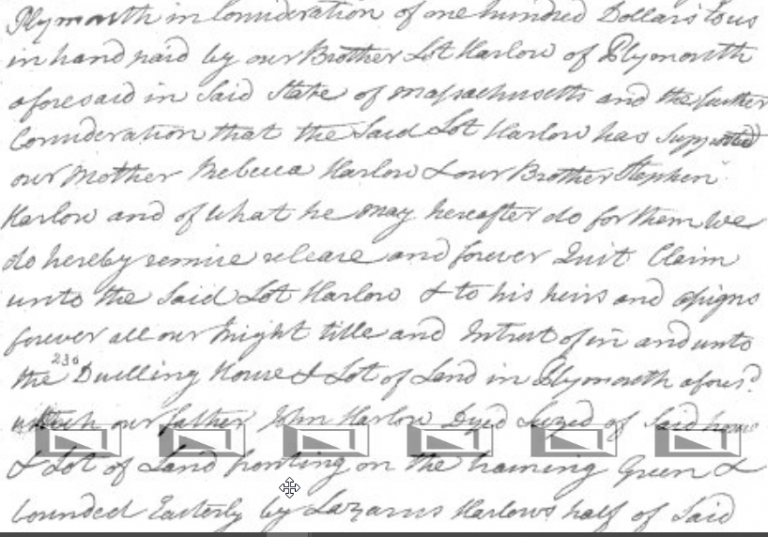 Plymouth in Consideration of one hundred Dollars to us
in hand paid by our Brother Lot Harlow of Plymouth
aforesaid in Said State of Massachusetts and the further
Consideration that the Said Lot Harlow has Supported
our Mother Rebecca Harlow & our Brother Stephen
Harlow and of what he may hereafter do for them We
do hereby remise release and forever Quit Claim
unto the Said Lot Harlow & to his heirs and assigns
forever all our right title and Intrest of in and unto
the 230 Dwelling House & Lot of Land in Plymouth afores?
which our father John Harlow Dyed Seized of Said house
& Lot of Land fronting on the training Green &
bounded Easterly by Lazarus Harlows half of Said